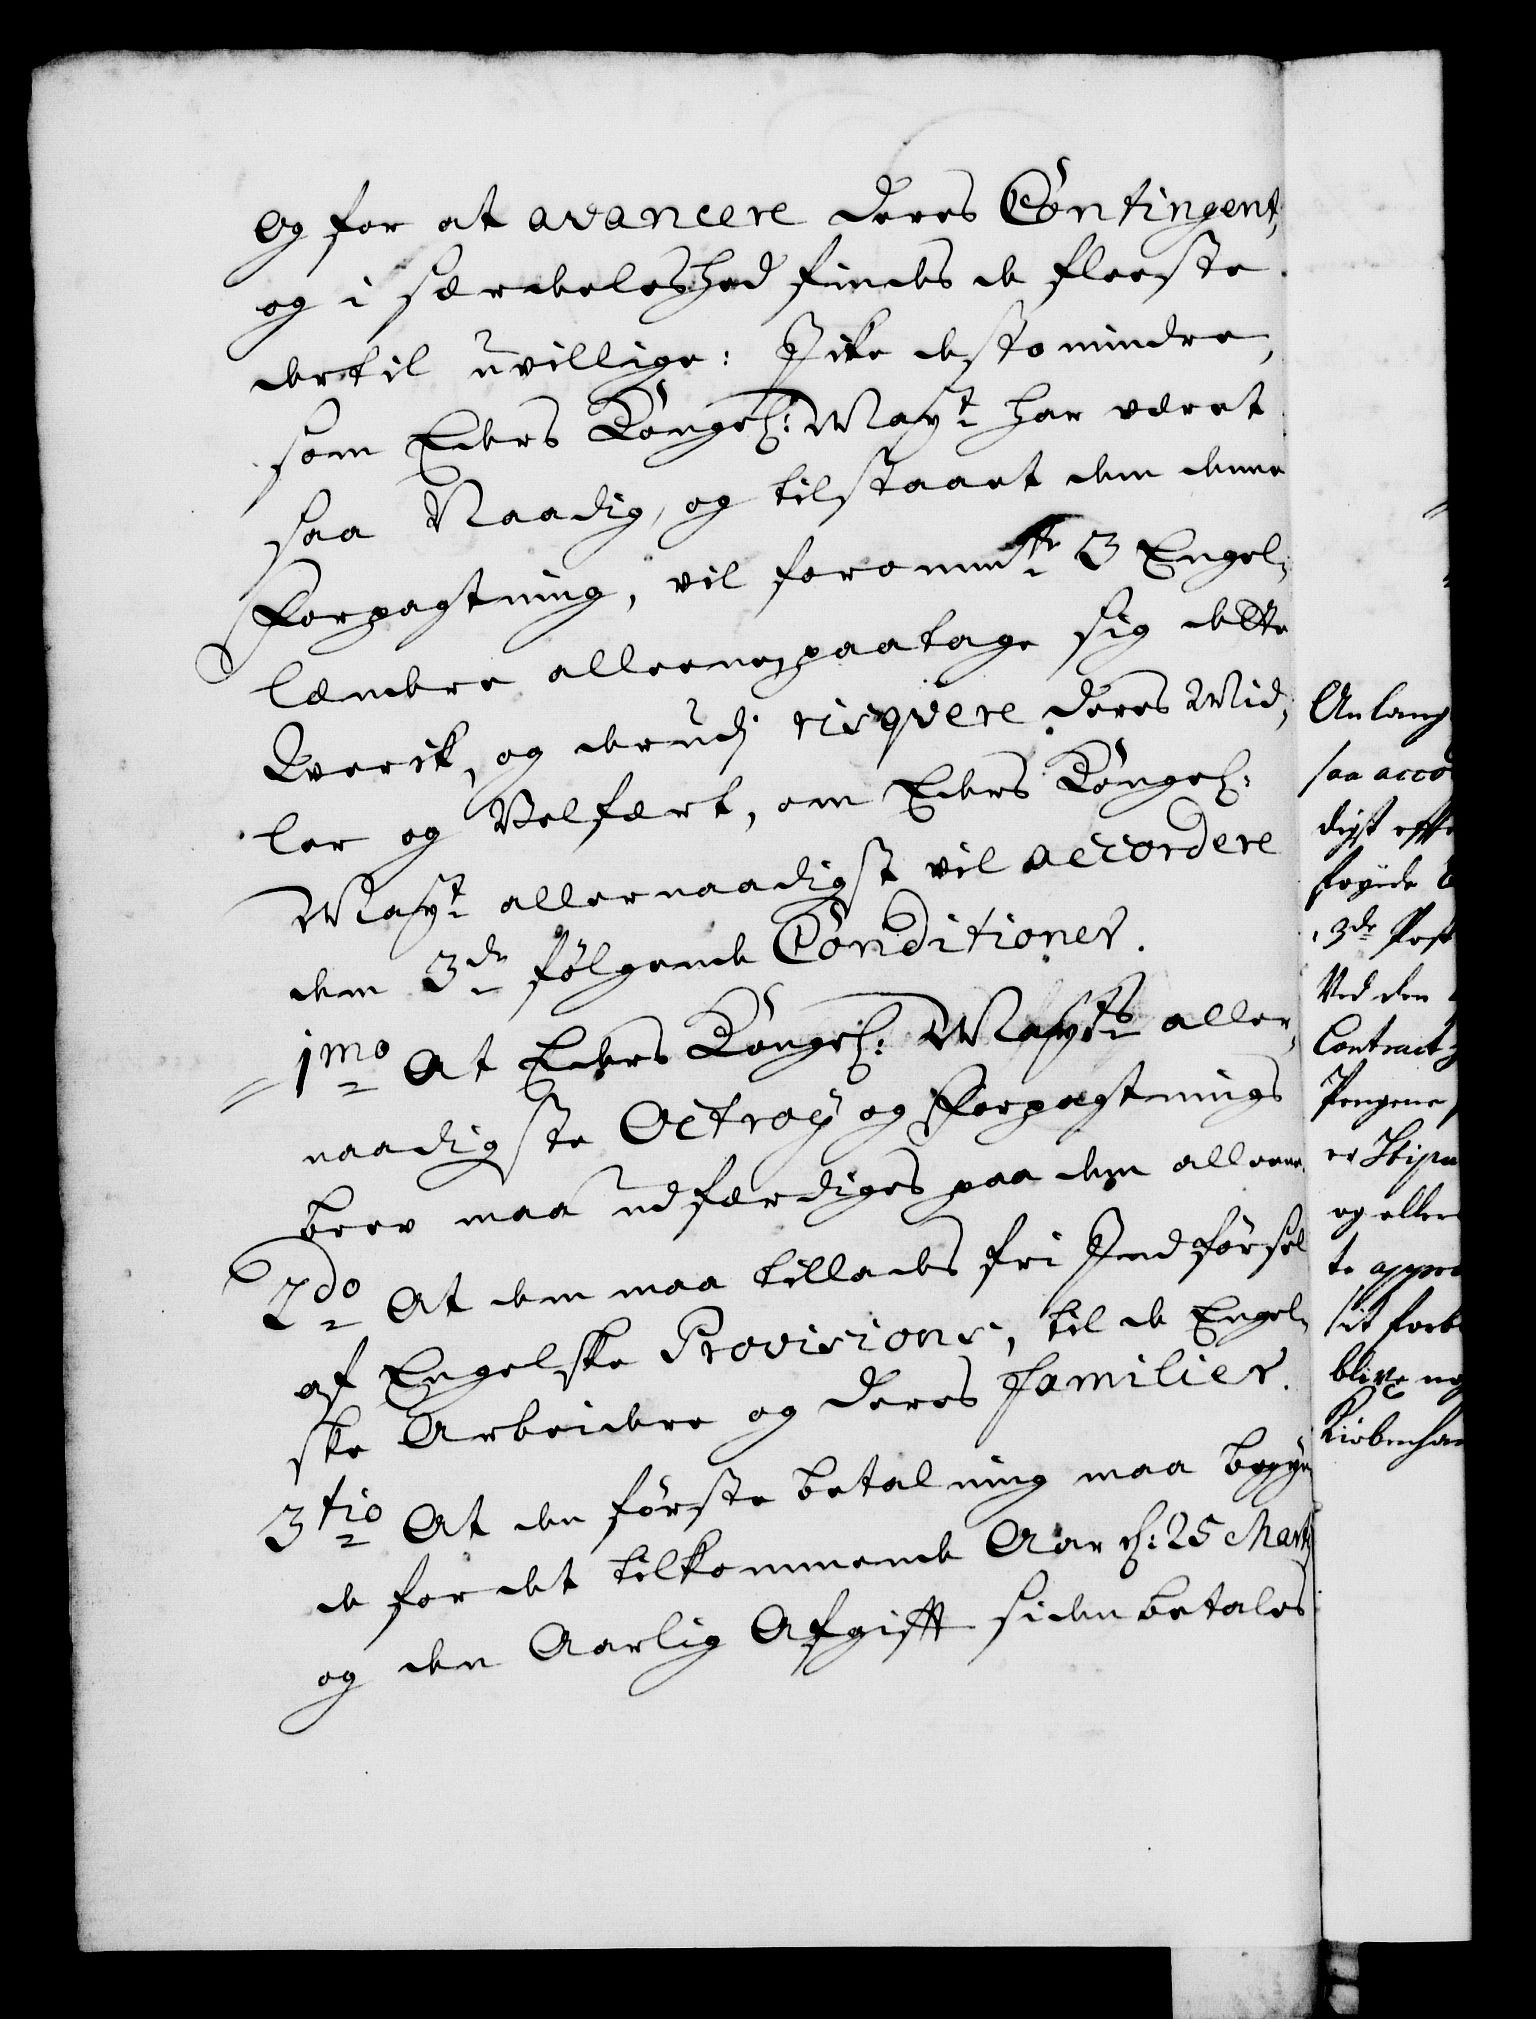 og for at avancere deres Contingent,
og i særdeleshed findes de fleeste
dertil uvillige: Icke destomindre,
som Eders Kongel: Mayt har været
saa Naadig, og tilstaaet dem denne
Forpagtning, vil forommte 3 Engel-
lændere alleene paatage sig dette
Hverck, og derudj risqvere deres Mid-
ler og Velfært, om Eders Kongel:
Mayt allernaadigst vil accordere
dem 3de følgende Conditioner.
1mo At Eders Kongel: Mayts aller-
naadigste Octroy og Forpagtnings
brev maa udfærdiges paa dem alleene.
2do At dem maa tillades fri Indførsel
af Engelske Provisioner, til de Engel-
ske Arbeidere og deres Familier.
3tio At den første betalning maa begyn-
de for det tilkommende Aar d: 25 Martj
og den Aarlig Afgifft siden betales
Anlang
saa acco
digst effe
føyede
3de Post
Ved den
Contract
Pengene
er Stipu
og ellers
te appro
sit forb
blive no
Kiøbenhav